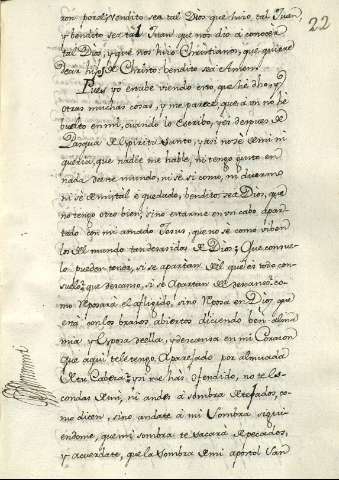 22
ron por el, vendito sea tal Dios que hizo tal Juan,
y bendito sea tal Juan que nos dio a conocer
tal Dios, y que nos hizo Christianos, que quiere
decir hijos de Christo: bendito sea Amen.
Pues yo estube viendo esto, que he dho, y
otras muchas cosas, y me parece, que a mi no he
buelto en mi, quando lo escribo, y es despues de
Pasqua del Spiritu Santo, y asi no sè de mi ni
gusto, que nadie me hable, ni tengo gusto en
nada de este mundo, ni sè si como, ni duermo
ni sè de mi, tal è quedado, bendito sea Dios, que
no tengo otro bien, sino estarme en un cabo apar-
tado con mi amado Jesus, que no sè como viben
los del mundo tan derasidos de Dios; Que consue-
lo pueden tener, si se apartan del que es todo con-
suelo; que descanso, si se apartan del descanso; co-
mo reposarà el afligido, sino reposa en Dios, que
està con los brazos abiertos diciendo ben alma
mia y esposa de ella, y descansa en mi Corazon
que aqui te le tengo aparejado por almoada
de tu Cabeza; y si me has ofendido, no te es-
condas de mi, ni andes à sombra de tejados, co-
mo dicen, sino andate à mi Sombra sigui-
endome, que mi sombra te sacarà de pecados,
y acuerdate, que la Sombra de mi apostol San